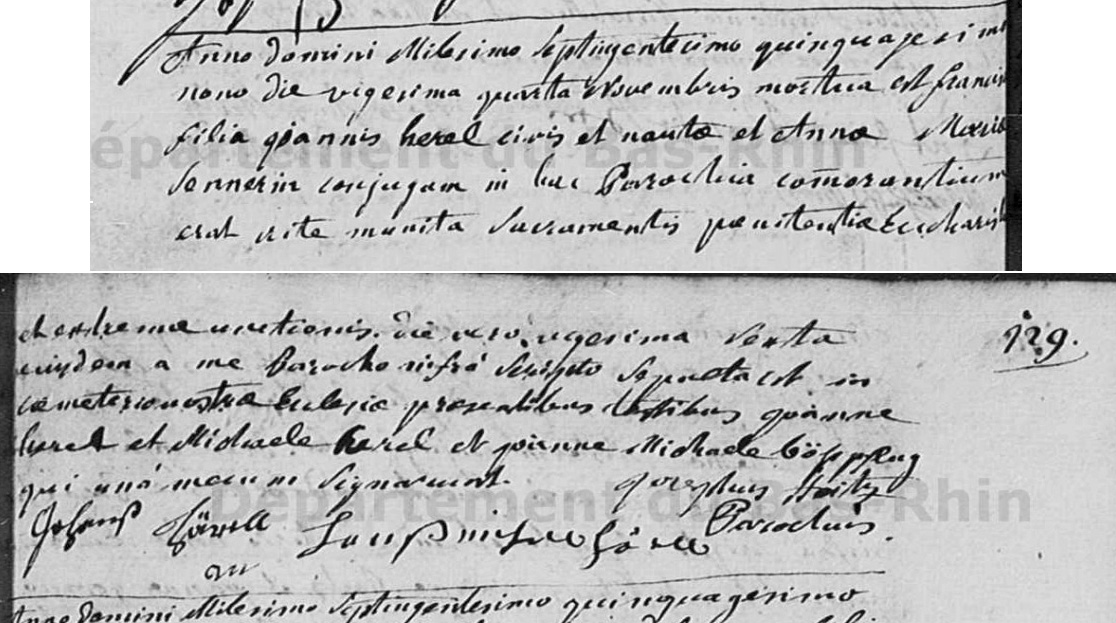 Anno domini Milesimo septingentesimo quinquagesimo
nono die vigesima quarta Novembris mortua est francis
filia joannis herel civis et nautæ et Annæ Mariæ
sennerin conjugum in hac Parochia comorantium
erat rite munita Sacramentis pœnitentiæ Eucharist
et extremæ unctionis. die vero vigesima sexta
eiusdem a me Parocho infra scripto sepulta est in
cœmeterio nostræ Eclesiæ præsentibus testibus joanne
herel et Michaele herel et joanne Michaele
qui una mecum signarunt. josephus
Parochus.
129.
Anno domini Milesimo Septingentesimo quinquagesimo
Département du Bas-Rhin
Département du Bas-Rhin